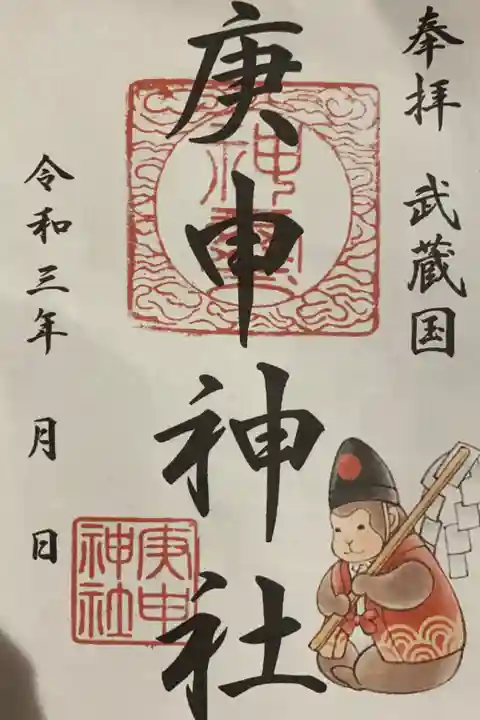 奉拝 武蔵国
庚申神社
神璽
庚申
神社
令和三年 月 日